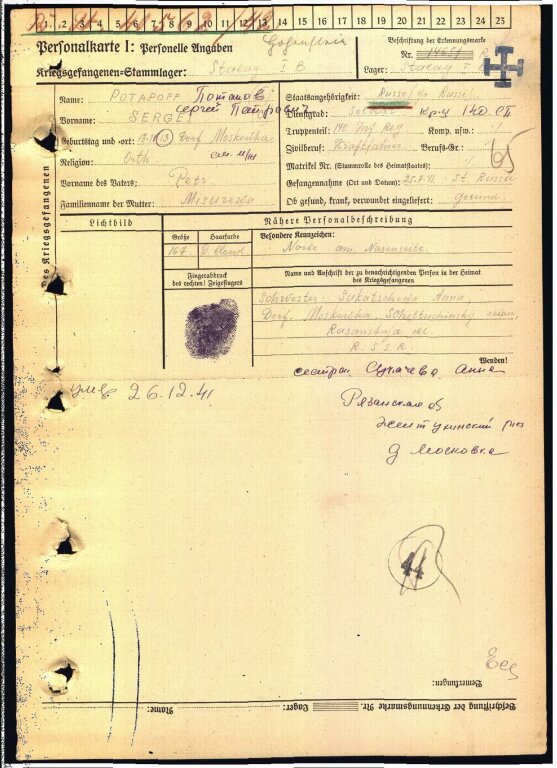 1 2 3 4 5 6 7 8 9 10 11 12 13 14 15 16 17 18 19 20 21 22 23 24 25
Personalkarte I: Personelle Angaben
Beschriftung der Erkennungsmarke
Nr.
Kriegsgefangenen-Stammlager: Stalag I B
Lager: Stalag I
Des Kriegsgefangenen
Name: POTAPOFF Потапов
Сергей Петрович
Vorname: SERGEJ
Geburtstag und -ort: 13 Dorf Moskowka
Religion: Orth.
Vorname des Vaters: Petr
Familienname der Mutter: Misurewa
Staatsangehörigkeit: Russe
Dienstgrad: Soldat Кр-ц 140 СП
Truppenteil: 140 Inf Reg Komp. usw.:
Zivilberuf: Kraftfahrer Berufs-Gr.:
65
Matrikel Nr. (Stammrolle des Heimatstaates):
Gefangennahme (Ort und Datum): 25.7.41 St. Russa
Ob gesund, krank, verwundet eingeliefert: gesund
Lichtbild
Nähere Personalbeschreibung
Größe
Haarfarbe
Besondere Kennzeichen:
167
D. blond
Narbe am Nasenseite
Fingerabdruck
des rechten! Zeigefingers
Name und Anschrift der zu benachrichtigenden Person in der Heimat
des Kriegsgefangenen
Schwester: Sukatschewa Anna
Dorf. Moskowka
Rasanskaja obl.
R.S.S.R.
Wenden!
сестра Сукачева Анна
умер 26.12.41
Рязанская об
д Московка
44
Bemerkungen:
Name:
Lager:
Beschriftung der Erkennungsmarke Nr.